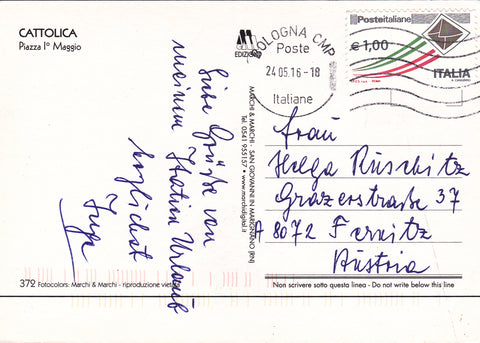 CATTOLICA
Piazza Iº Maggio
EDIZIONI
BOLOGNA CMP
Poste
24.05.16-18
Italiane
Posteitaliane
€1,00
ITALIA
Liebe Grüße von
meinem Italien Urlaub
herzlichst
Inge
MARCHI & MARCHI - SAN GIOVANNI IN MARIGNANO (RN)
Tel. 0541 955157 • www.marchidigital.it
Frau
Helga Ruschitz
Grazerstraße 37
A 8072 Fernitz
Austria
372 Fotocolors: Marchi & Marchi - riproduzione vietata
Non scrivere sotto questa linea - Do not write below this line